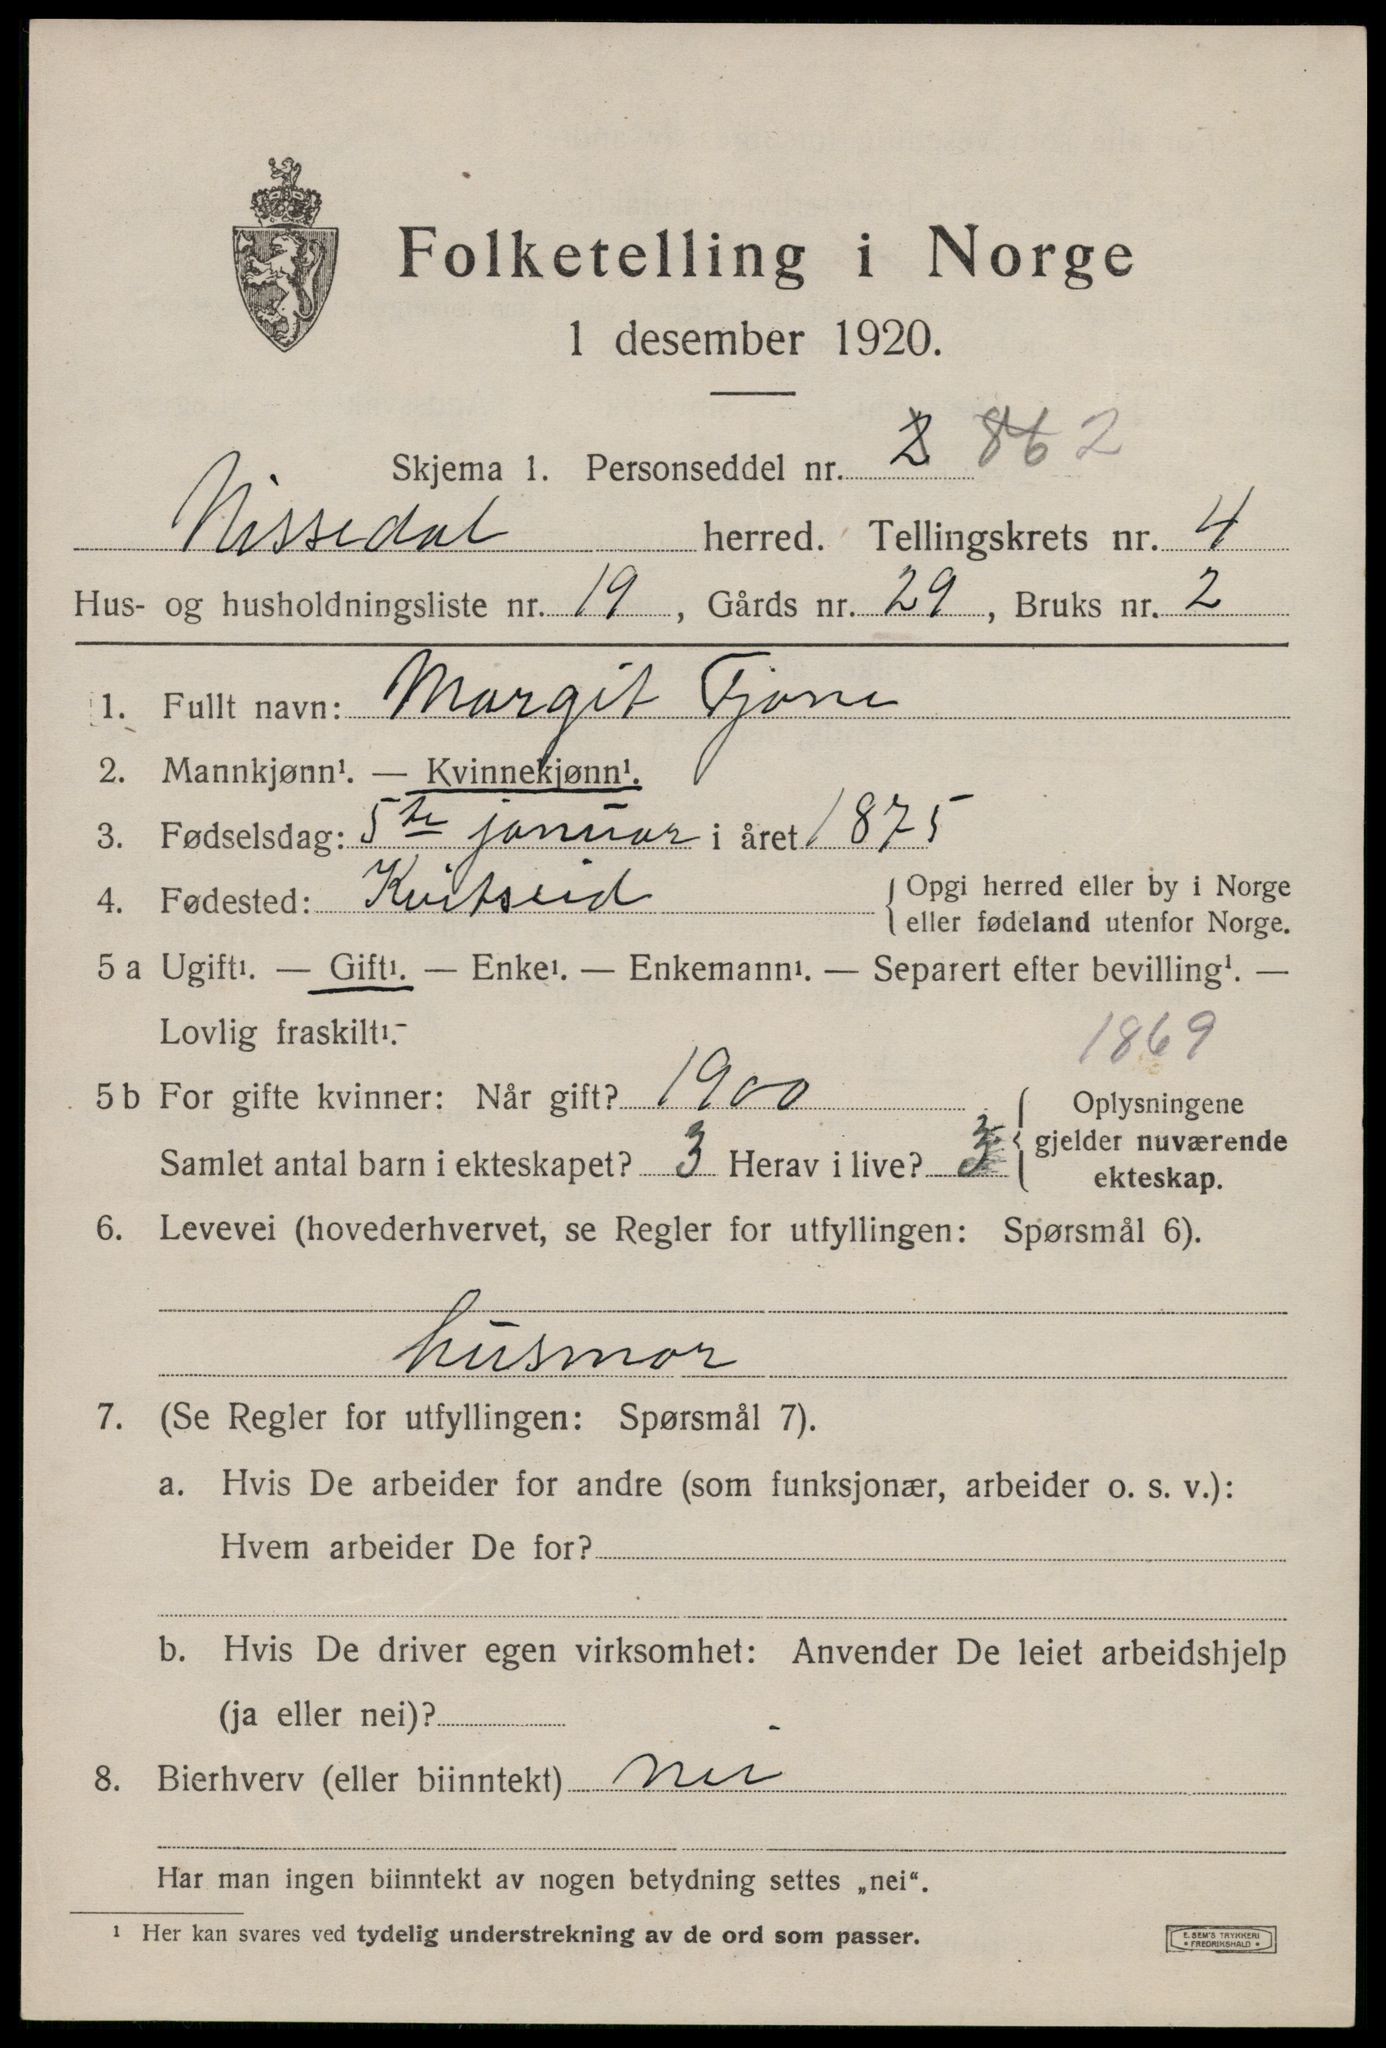 Folketelling i Norge
1 desember 1920.
Skjema 1. Personseddel nr. 2 86 2
Nissedal herred. Tellingskrets nr. 4
Hus- og husholdningsliste nr. 19, Gårds nr. 29, Bruks nr. 2
1. Fullt navn: Margit Tjone
2. Mannkjønn¹. — Kvinnekjønn¹.
3. Fødselsdag: 5te januar i året 1875
4. Fødested: Kvitseid {Opgi herred eller by i Norge
eller fødeland utenfor Norge.
5 a Ugift¹. — Gift¹. — Enke¹. — Enkemann¹. — Separert efter bevilling¹. —
Lovlig fraskilt¹.-
1869
5 b For gifte kvinner: Når gift? 1900 Oplysningene
Samlet antal barn i ekteskapet? 3 Herav i live? 3 { gjelder nuværende
ekteskap.
6. Levevei (hovederhvervet, se Regler for utfyllingen: Spørsmål 6).
husmor
7. (Se Regler for utfyllingen: Spørsmål 7).
a. Hvis De arbeider for andre (som funksjonær, arbeider o. s. v.):
Hvem arbeider De for?
b. Hvis De driver egen virksomhet: Anvender De leiet arbeidshjelp
(ja eller nei)?
8. Bierhverv (eller biinntekt) nei
Har man ingen biinntekt av nogen betydning settes „nei“.
¹ Her kan svares ved tydelig understrekning av de ord som passer.
E. SEM'S TRYKKERI
• FREDRIKSHALD •